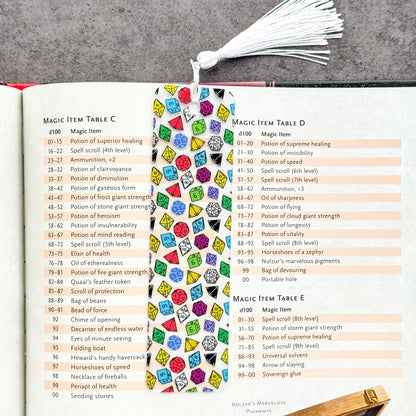 Magic Item Table C
d100 Magic Item
01–15 Potion of superior healing
16–22 Spell scroll (4th level)
23–27 Ammunition, +2
28–32 Potion of clairvoyance
33–37 Potion of diminution
38–42 Potion of gaseous form
43–47 Potion of frost giant strength
48–52 Potion of stone giant strength
53–57 Potion of heroism
58–62 Potion of invulnerability
63–67 Potion of mind reading
68–72 Spell scroll (5th level)
73–75 Elixir of health
76–78 Oil of etherealness
79–81 Potion of fire giant strength
82–84 Quaal's feather token
85–87 Scroll of protection
88–89 Bag of beans
90–91 Bead of force
92 Chime of opening
93 Decanter of endless water
94 Eyes of minute seeing
95 Folding boat
96 Heward's handy haversack
97 Horseshoes of speed
98 Necklace of fireballs
99 Periapt of health
00 Sending stones
Magic Item Table D
d100 Magic Item
01–20 Potion of supreme healing
21–30 Potion of invisibility
31–40 Potion of speed
41–50 Spell scroll (6th level)
51–57 Spell scroll (7th level)
58–62 Ammunition, +3
63–67 Oil of sharpness
68–72 Potion of flying
73–77 Potion of cloud giant strength
78–82 Potion of longevity
83–87 Potion of vitality
88–92 Spell scroll (8th level)
93–95 Horseshoes of a zephyr
96–98 Nolzur's marvelous pigments
99 Bag of devouring
00 Portable hole
Magic Item Table E
d100 Magic Item
01–30 Spell scroll (8th level)
31–55 Potion of storm giant strength
56–70 Potion of supreme healing
71–85 Spell scroll (9th level)
86–93 Universal solvent
94–98 Arrow of slaying
99–00 Sovereign glue
Nolzur's Marvelous
Pigments